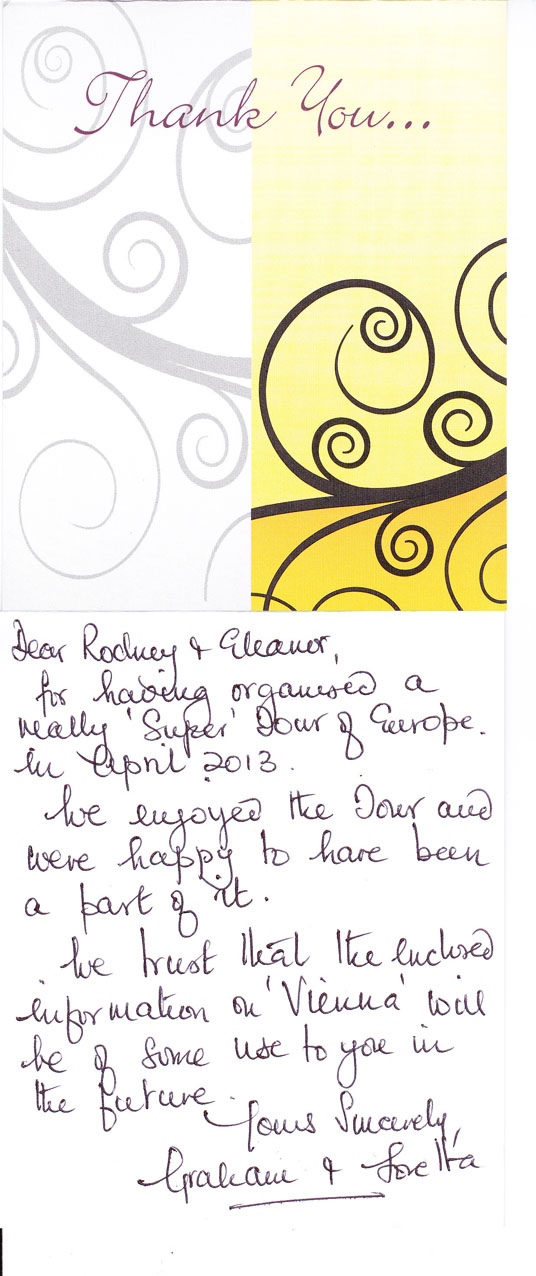 Thank You...
Dear Rodney & Eleanor,
for having organised a
really 'Super' Tour of Europe.
in April 2013.
We enjoyed the Tour and
were happy to have been
a part of it.
We trust that the enclosed
information on 'Vienna' will
be of some use to you in
the future.
Yours Sincerely,
Graham & Loretta